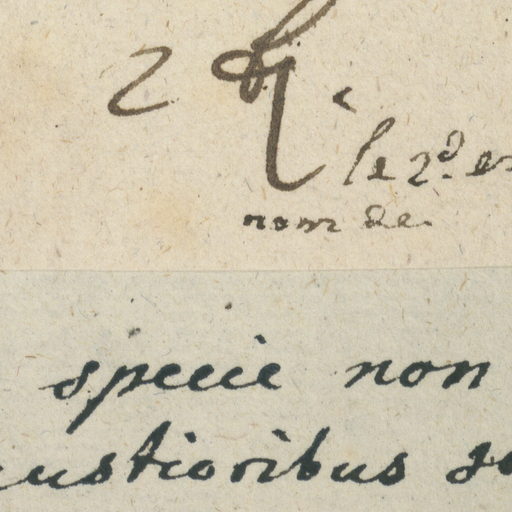 2
le 2.d en
nom de.
specie non
ustioribus